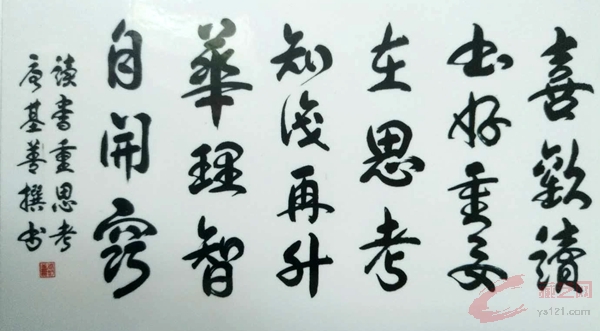 喜歡讀
书好重要
在思考
知识再升
華理智
自開窍
讀書重思考
基善撰书
ya121.com